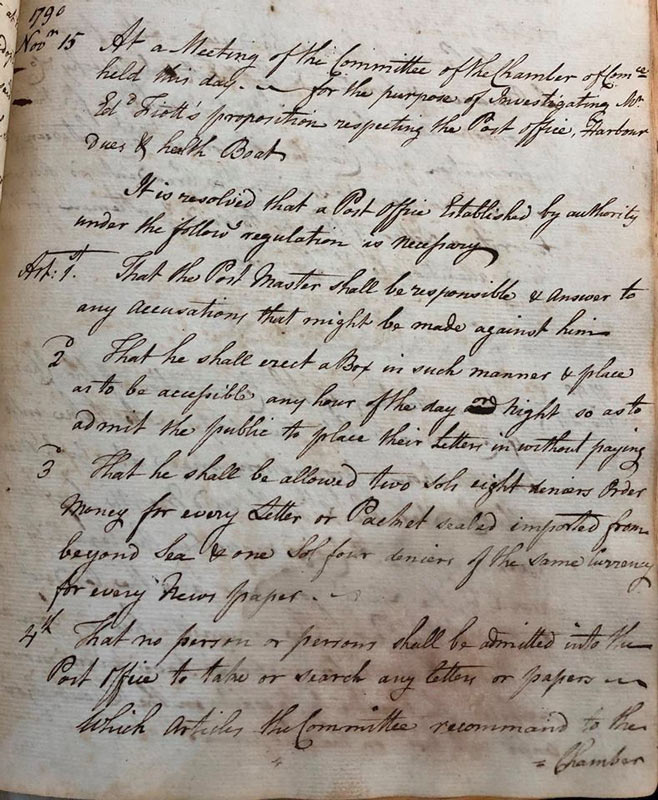 1790
Novr 15 At a Meeting of the Committee of the Chamber of Comce
held this day. — for the purpose of Investigating Mr
Edd Fiott's proposition respecting the Post office, Harbour
Dues & health Boat
It is resolved that a Post Office Established by authority
under the followg regulation is necessary
Art: 1st. That the Post Master shall be responsible & answer to
any accusations that might be made against him
2d That he shall erect a Box in such manner & place
as to be accessible any hour of the day and Night so as to
admit the public to place their Letters in without paying
3d That he shall be allowed two sols eight deniers Order
Money for every Letter or Packet sealed imported from
beyond Sea & one Sol four deniers of the same Currency
for every News paper. —
4th That no person or persons shall be admitted into the
Post Office to take or search any letters or papers —
Which Articles the Committee recommand to the
= Chamber